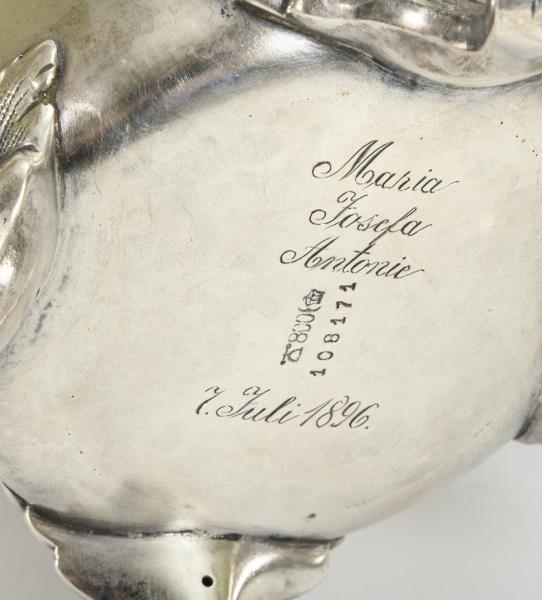 Maria
Josefa
Antonie
800
108171
7. Juli 1896.